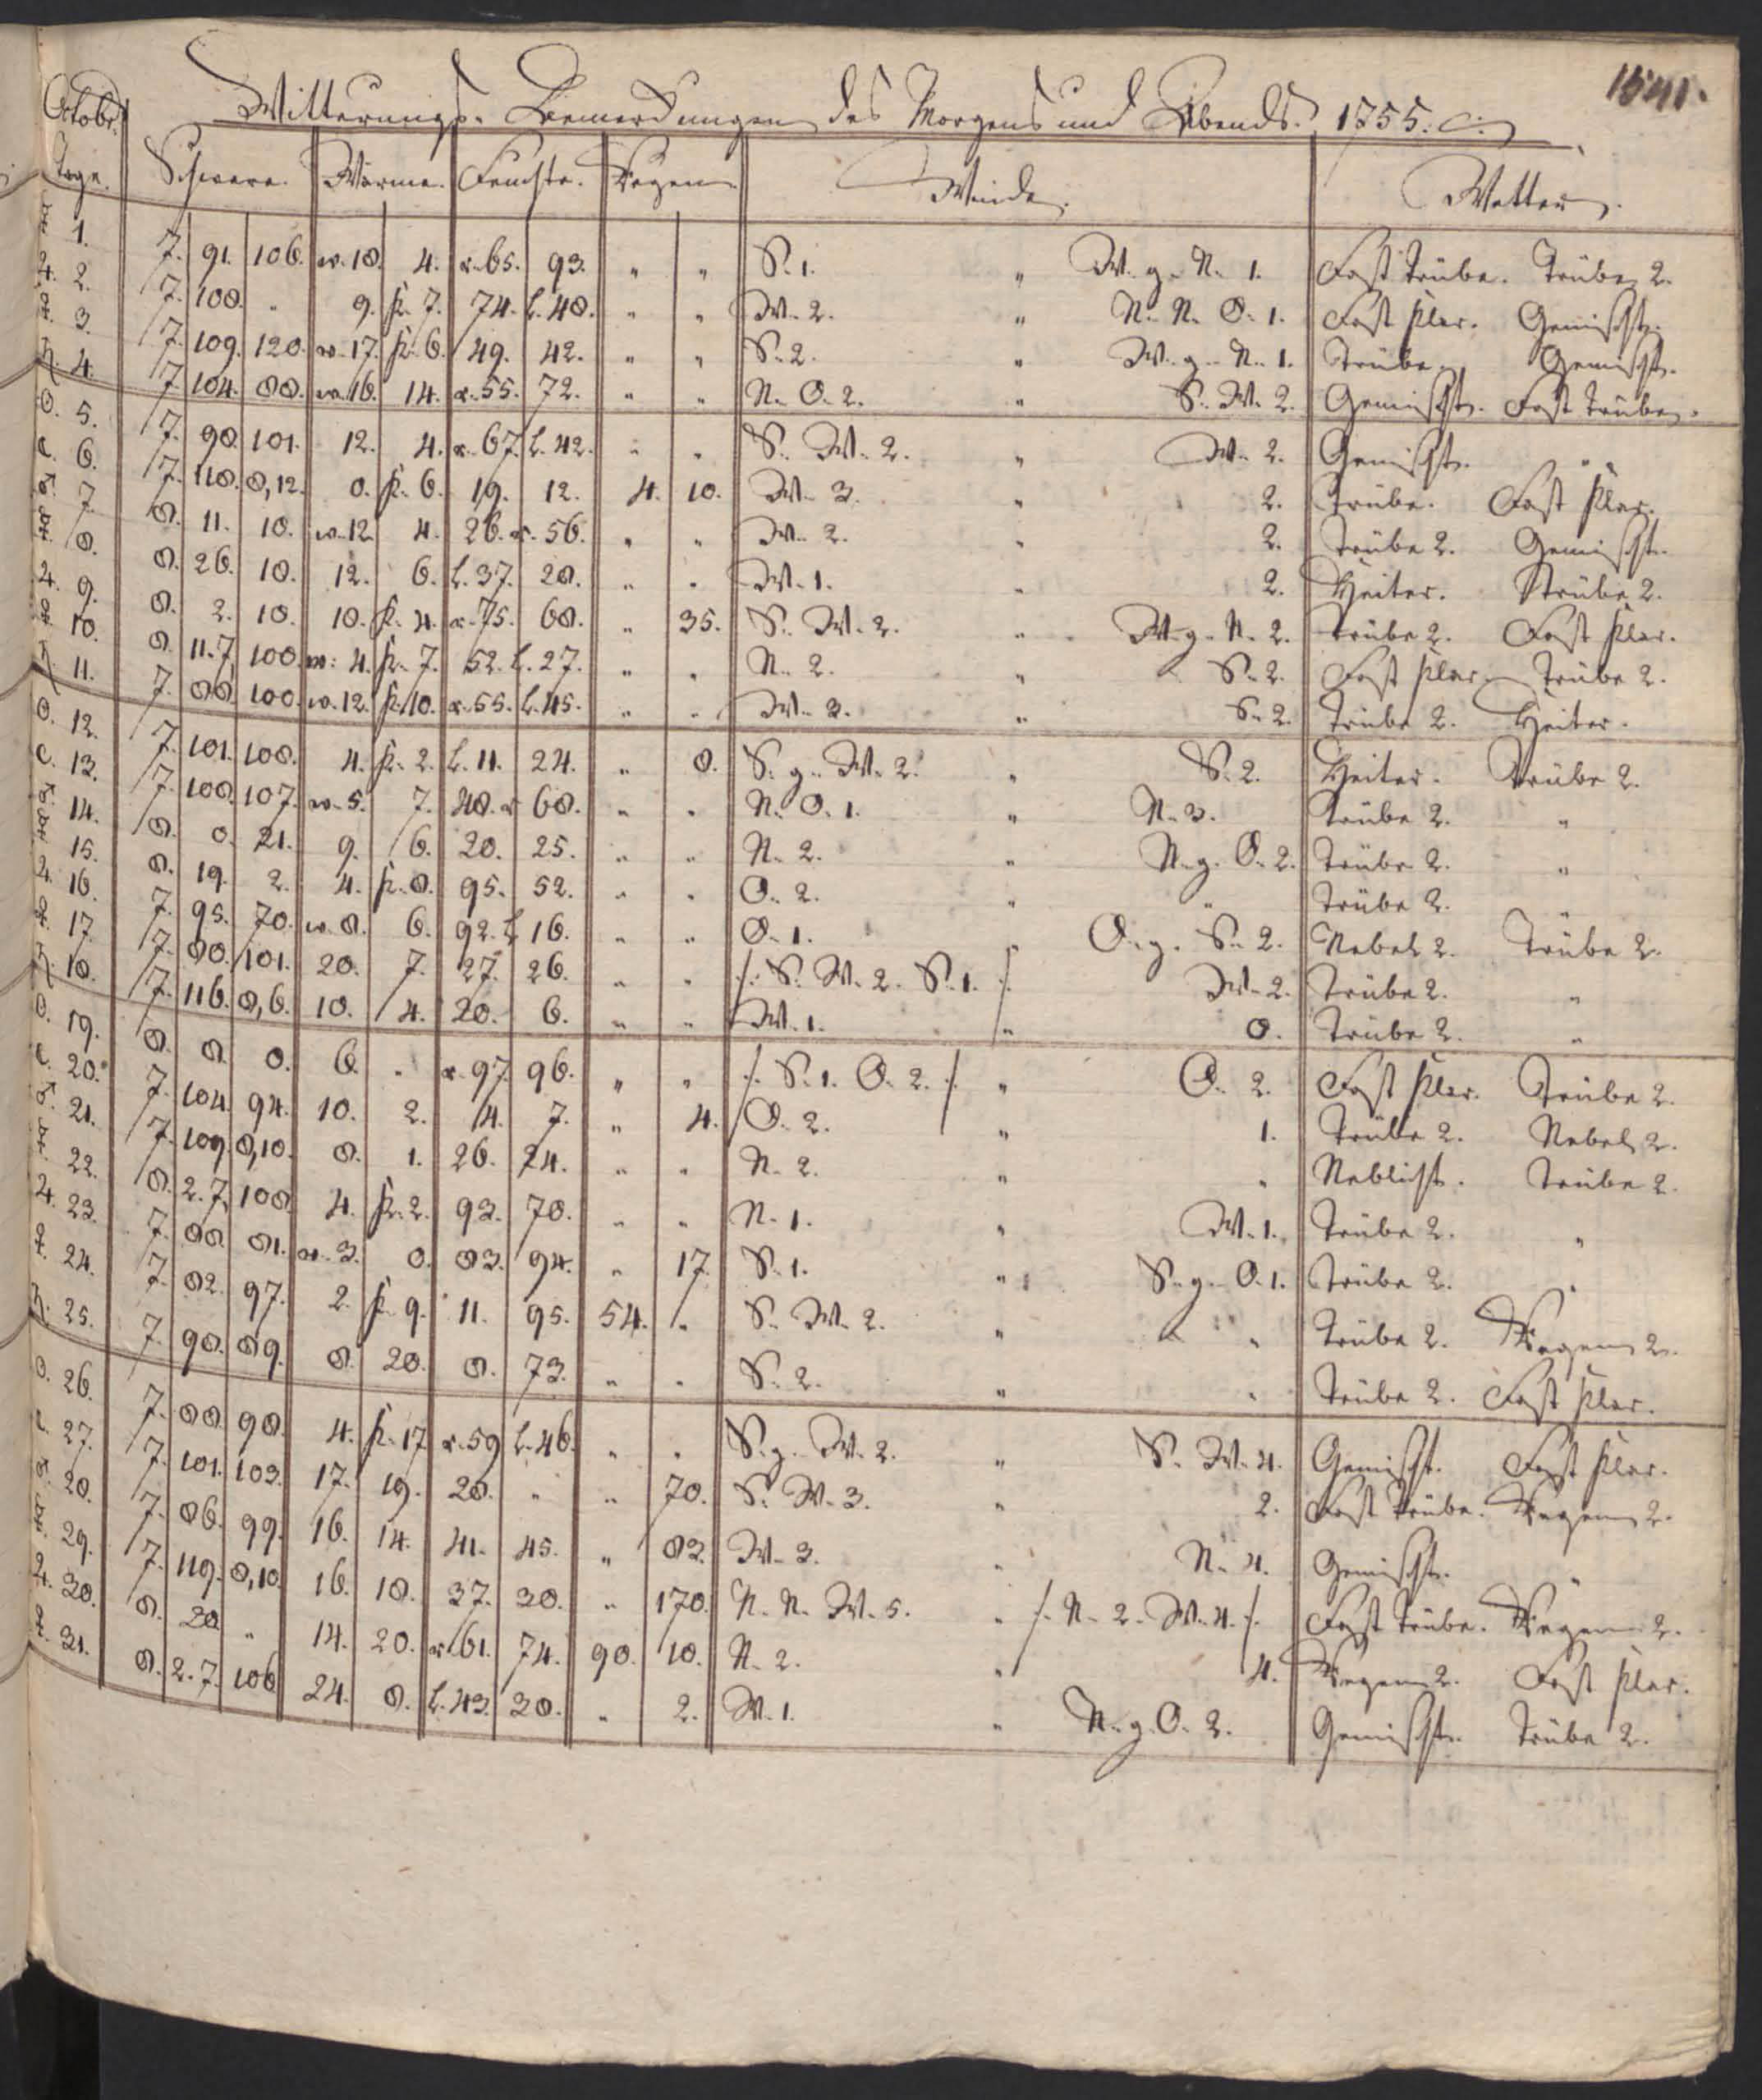 1541.
Octobr. Witterungs-Bemerckungen des Morgens und Abends. 1755.
Tage. Schwere. Wärme. Feuchte. Regen. Winde. Wetter.
☿ 1. 7. 91. 106. w. 18. 4. r. 65. 93. " " S. 1. " W. g. N. 1. Fast trübe. Trübe 2.
♃ 2. 7. 108. " 9. k. 7. 74. l. 48. " " W. 2. " N. N. O. 1. Fast klar. Gemischt.
♀ 3. 7. 109. 120. w. 17. k. 6. 49. 42. " " S. 2. " W. g. N. 1. Trübe. Gemischt.
♄ 4. 7. 104. 88. w. 16. 14. r. 55. 72. " " N. O. 2. " S. W. 2. Gemischt. Fast trübe.
☉ 5. 7. 98. 101. 12. 4. r. 67. l. 42. " " S. W. 2. " W. 2. Gemischt. "
☾ 6. 7. 118. 8,12. 0. k. 6. 19. 12. 4. 10. W. 3. " 2. Trübe. Fast klar.
♂ 7. 8. 11. 18. w. 12. 4. 26. r. 56. " " W. 2. " 2. Trübe 2. Gemischt.
☿ 8. 8. 26. 18. 12. 6. l. 37. 28. " " W. 1. " 2. Heiter. Trübe 2.
♃ 9. 8. 2. 10. 18. k. 4. r. 75. 68. " 35. S. W. 2. " W. g. N. 2. Trübe 2. Fast klar.
♀ 10. 8. 11. 7. 108. w. 4. k. 7. 52. l. 27. " " N. 2. " S. 2. Fast klar. Trübe 2.
♄ 11. 7. 88. 100. w. 12. k. 10. r. 55. l. 45. " " W. 3. " S. 2. Trübe 2. Heiter.
☉ 12. 7. 101. 108. 4. k. 2. l. 11. 24. " 8. S. g. W. 2. " S. 2. Heiter. Trübe 2.
☾ 13. 7. 108. 107. w. 5. 7. 48. r. 68. " " N. O. 1. " N. 3. Trübe 2. "
♂ 14. 8. 0. 21. 9. 6. 20. 25. " " N. 2. " N. g. O. 2. Trübe 2. "
☿ 15. 8. 19. 2. 4. k. 8. 95. 52. " " O. 2. " " Trübe 2.
♃ 16. 7. 95. 70. w. 8. 6. 92. l. 16. " " O. 1. " O. g. S. 2. Nebel 2. Trübe 2.
♀ 17. 7. 80. 101. 20. 7. 27. 26. " " /: S. W. 2. S. 1. :/ W. 2. Trübe 2. "
♄ 18. 7. 116. 8,6. 10. 4. 20. 6. " " W. 1. " 0. Trübe 2. "
☉ 19. 8. 8. 0. 6. " r. 97. 96. " " /: S. 1. O. 2. :/ " O. 2. Fast klar. Trübe 2.
☾ 20. 7. 104. 94. 10. 2. 4. 7. " 4. O. 2. " 1. Trübe 2. Nebel 2.
♂ 21. 7. 109. 8,10. 8. 1. 26. 24. " " N. 2. " " Neblicht. Trübe 2.
☿ 22. 8. 2. 7. 108. 4. k. 2. 93. 70. " " N. 1. " W. 1. Trübe 2. "
♃ 23. 7. 88. 81. w. 3. 0. 83. 94. " 17. S. 1. " S. g. O. 1. Trübe 2. "
♀ 24. 7. 82. 97. 2. k. 9. 11. 95. 54. " S. W. 2. " " Trübe 2. Regen 2.
♄ 25. 7. 98. 89. 8. 20. 8. 73. " " S. 2. " " Trübe 2. Fast klar.
☉ 26. 7. 88. 98. 4. k. 17. r. 59. l. 46. " " S. g. W. 2. " S. W. 4. Gemischt. Fast klar.
☾ 27. 7. 101. 103. 17. 19. 28. " " 70. S. W. 3. " 2. Fast trübe. Regen 2.
♂ 28. 7. 86. 99. 16. 14. 41. 45. " 83. W. 3. " N. 4. Gemischt. "
☿ 29. 7. 119. 8,10. 16. 18. 37. 30. " 170. N. N. W. 5. " /: N. 2. W. 4. :/ Fast trübe. Regen 2.
♃ 30. 8. 20. " 14. 20. r. 61. 74. 90. 10. N. 2. " 4. Regen 2. Fast klar.
♀ 31. 8. 2. 7. 106. 24. 8. l. 43. 30. " 2. W. 1. " N. g. O. 2. Gemischt. Trübe 2.